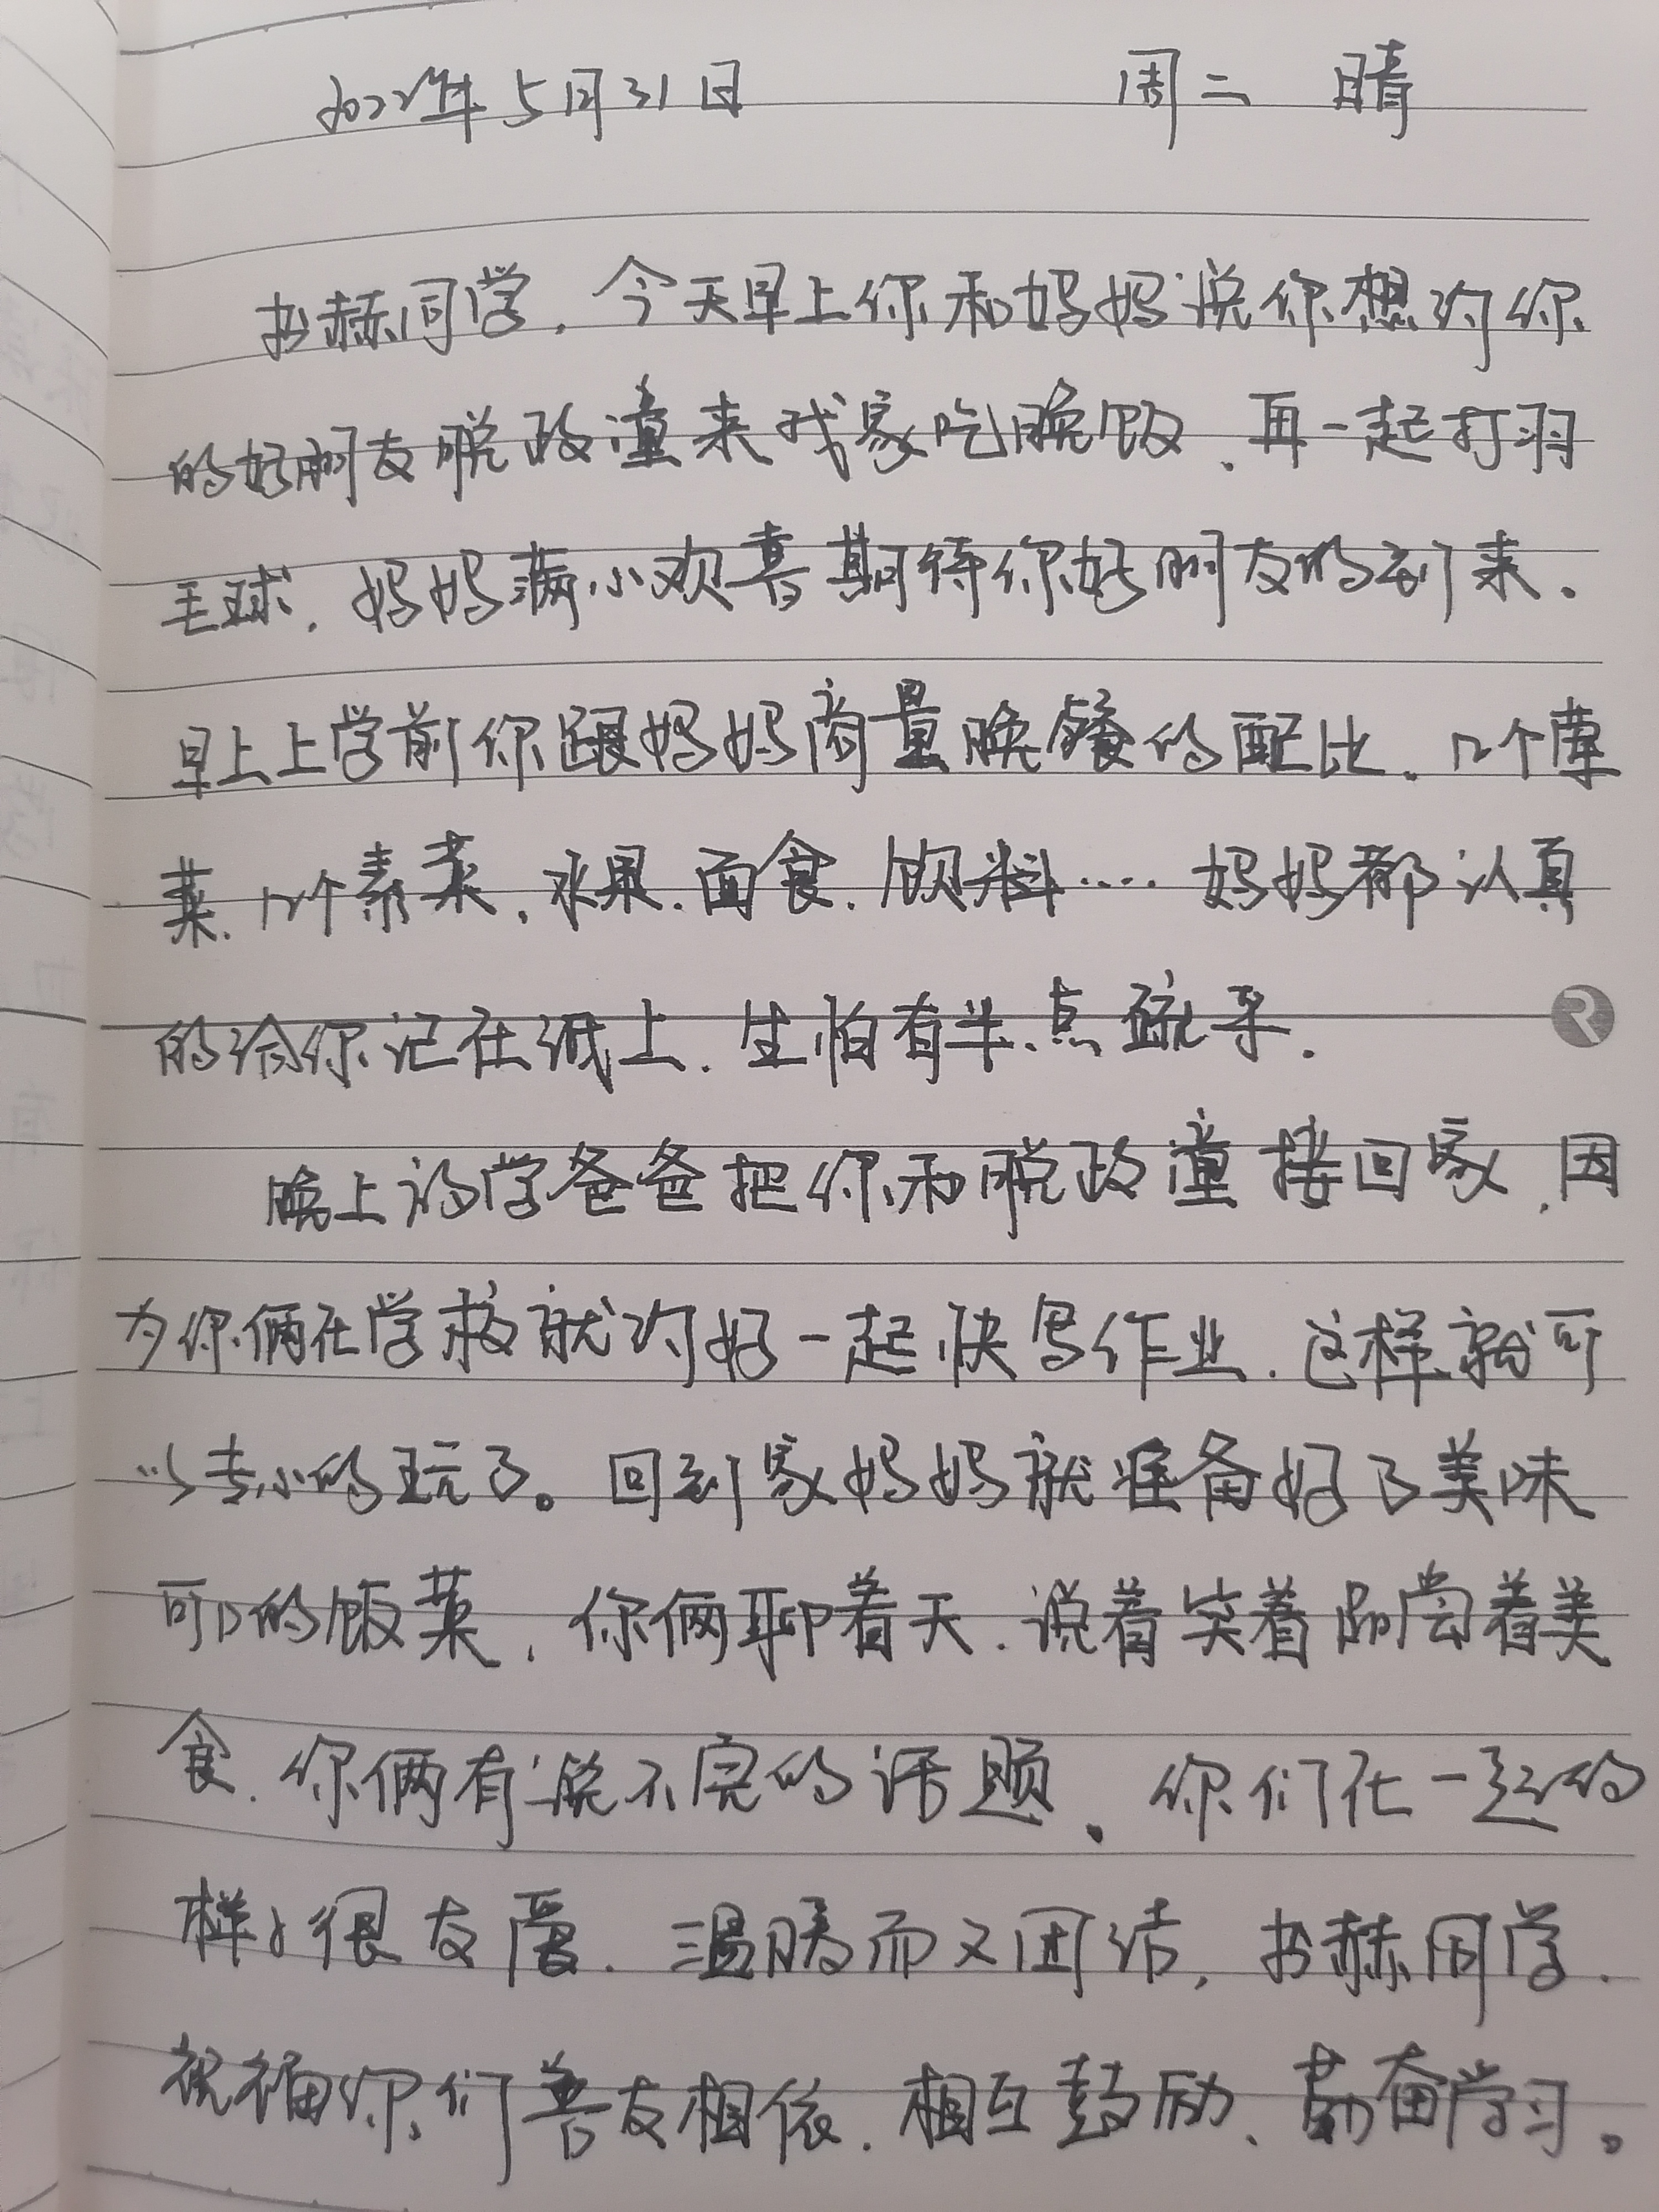 2022年5月31日 周二 晴
书赫同学，今天早上你和妈妈说你想约你
的好朋友脱政潼来我家吃晚饭，再一起打羽
毛球，妈妈满心欢喜期待你好朋友的到来。
早上上学前你跟妈妈商量晚餐的配比，几个荤
菜，几个素菜，水果、面食、饮料…… 妈妈都认真
的给你记在纸上，生怕有半点疏忽。
晚上放学爸爸把你和脱政潼接回家，因
为你俩在学校就约好一起快写作业，这样就可
以专心的玩了。回到家妈妈就准备好了美味
可口的饭菜，你俩聊着天，说着笑着品尝着美
食，你俩有说不完的话题。你们在一起的
样子很友爱，温暖而又团结，书赫同学，
祝福你们善友相依，相互鼓励、勤奋学习。
R